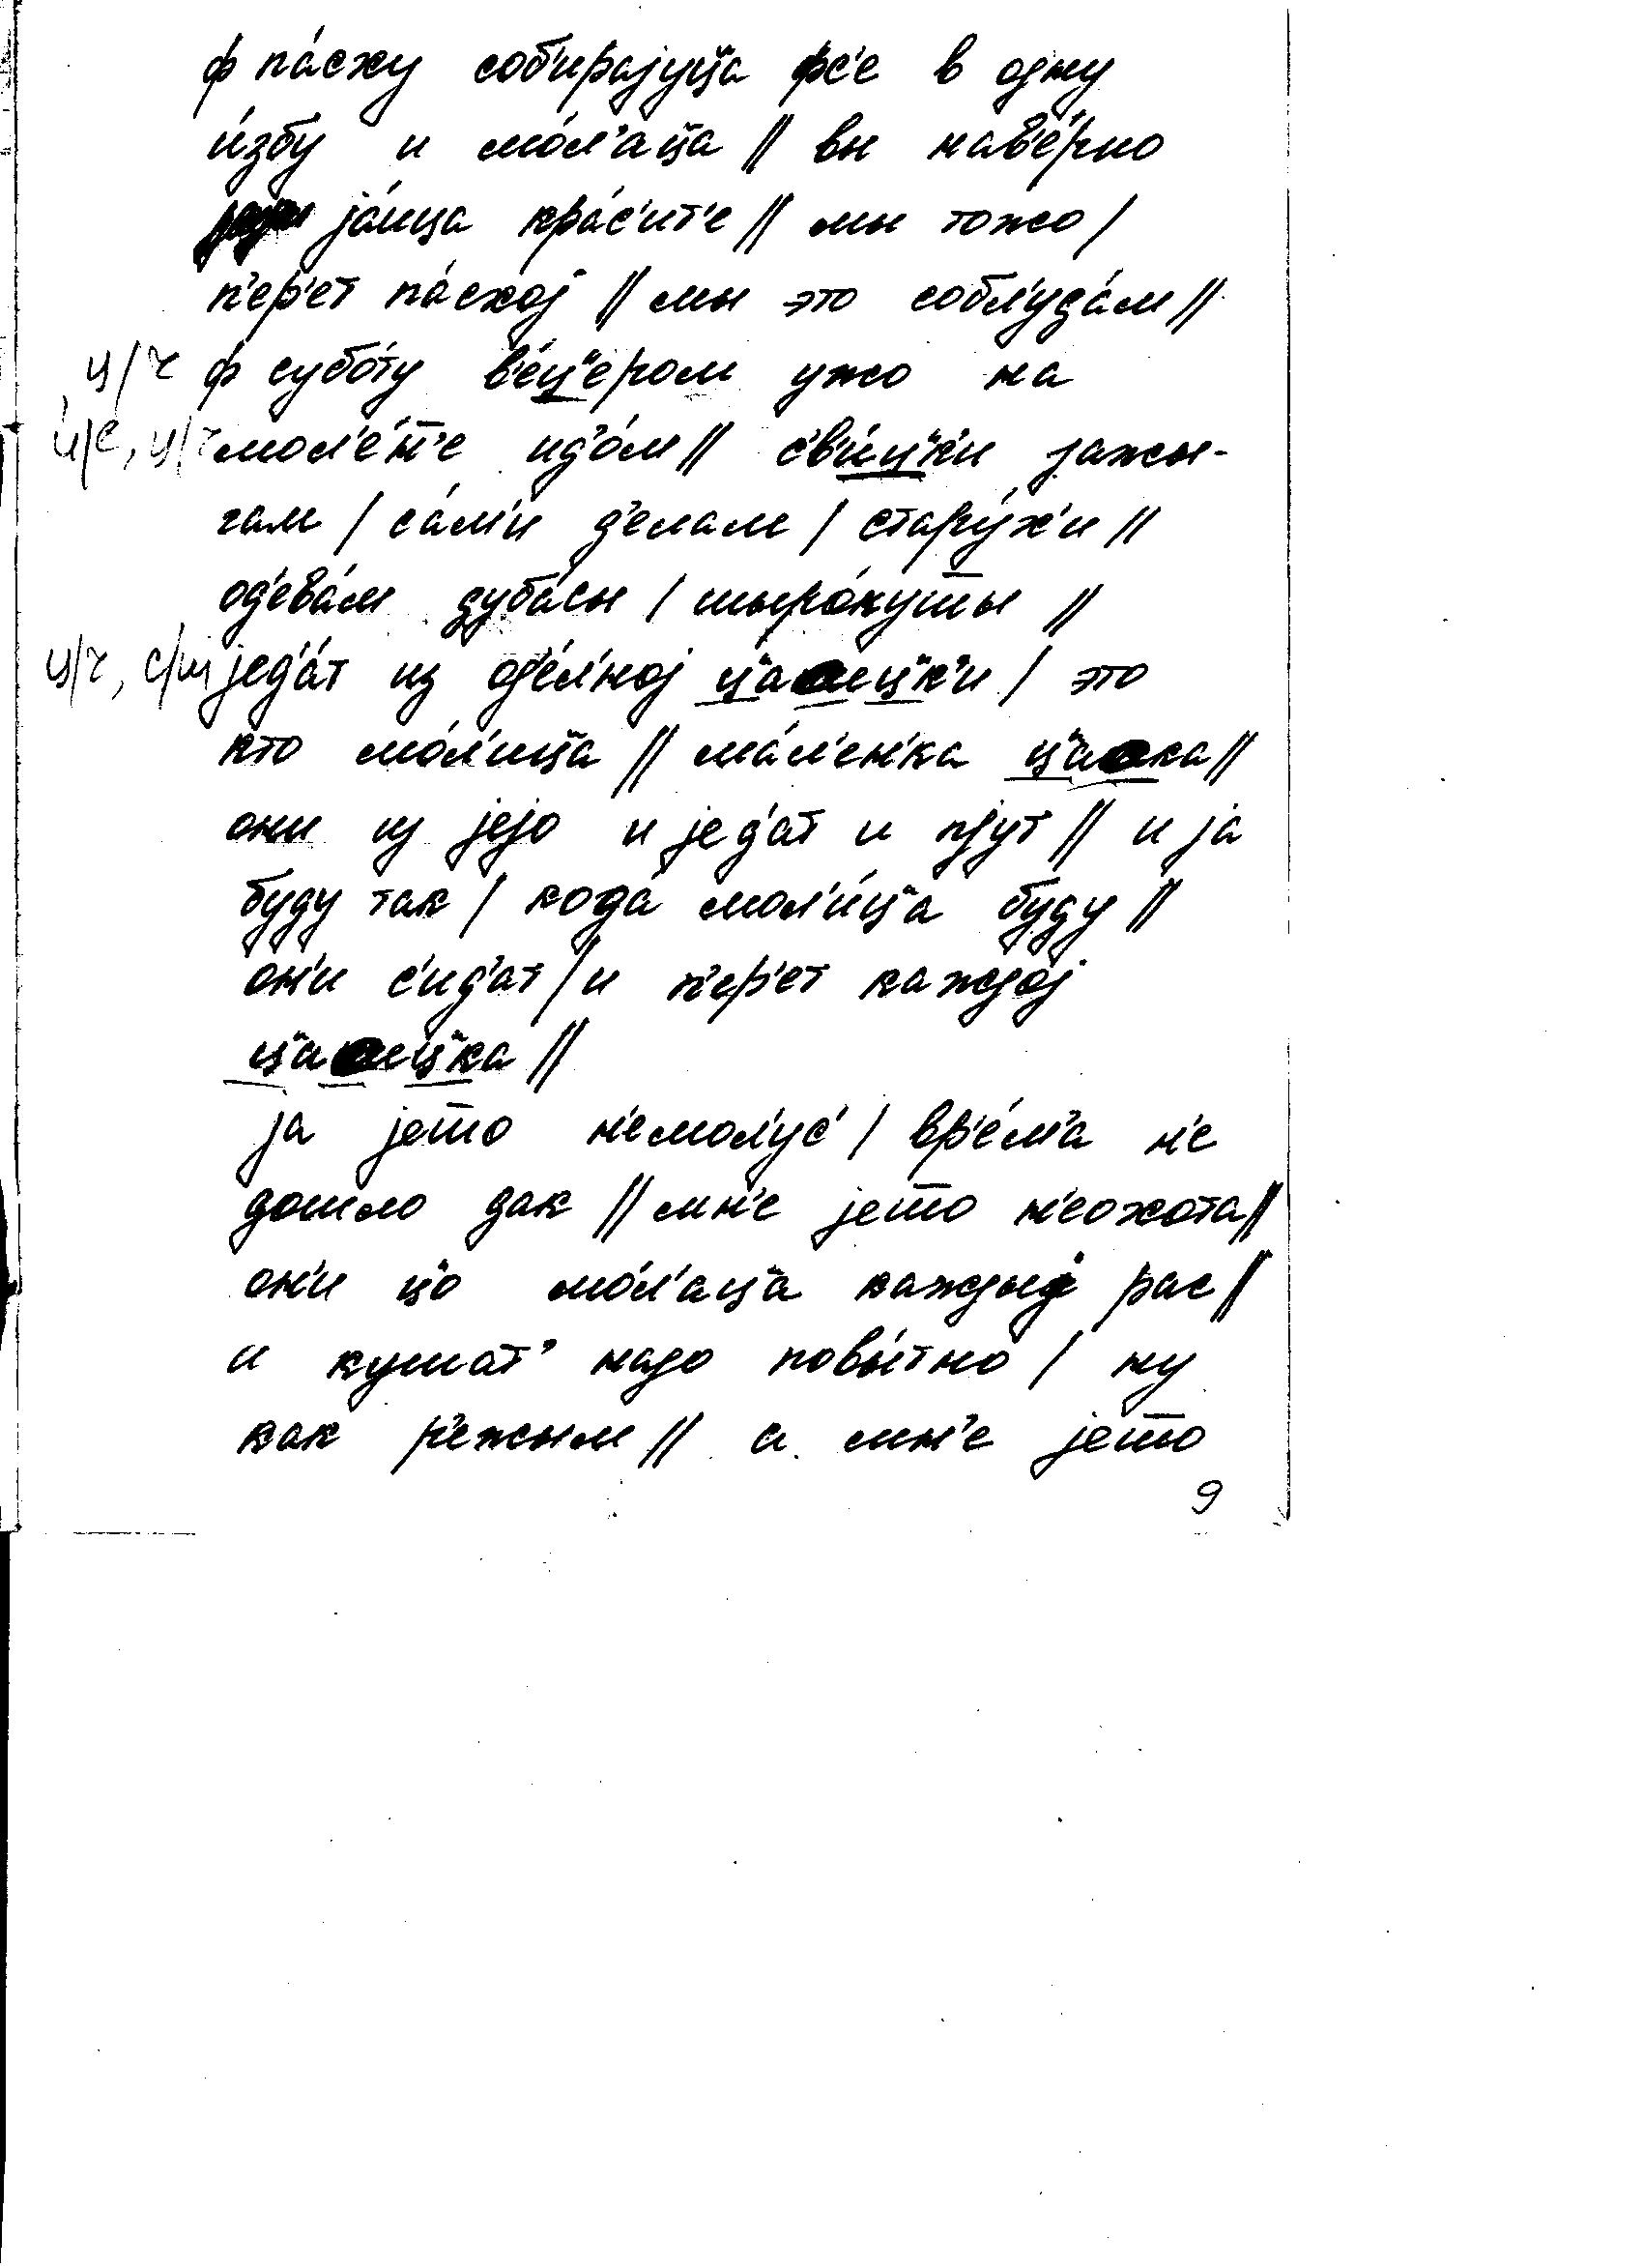 ф па́сху соб'ира́jуц̄а фс'е в одну
и́збу и мо́л'ац̄а // вы нав'е́рно
jа́ица кра́с'ит'е // мы тожо /
п'ер'ет па́схоj // мы это собл'уда́м //
ц/ч ф субо́ту в'е́ц"ером ужо на
и/е, ц/ч мол'е́н̄'е ид'о́м // с'в'и́ц"к'и зажы-
гам / са́м'и д'елам / стару́х'и //
од'ева́м дуба́сы / шыро́куш̄ы //
ц/ч, с/ш jед'а́т из од'е́л'ноj ц"а иц"к'и / это
кто мо́л'иц̄а // ма́л'ен'ка ц"а ка //
они из jеjо и jед'ат и пjут // и jа
буду так / кода́ мол'и́ц̄а буду //
он'и с'ид'ат / и п'ер'ет каждоj
ц"а иц"ка //
jа jеш̄о н'емол'ус' / вр'е́м'а н'е
дошло дак // мн'е jеш̄о н'еохота //
он'и ц"о мо́л'ац̄а каждыj рас //
и кушат' надо повы́тно / ну
как р'ежым // а мн'е jеш̄о
9